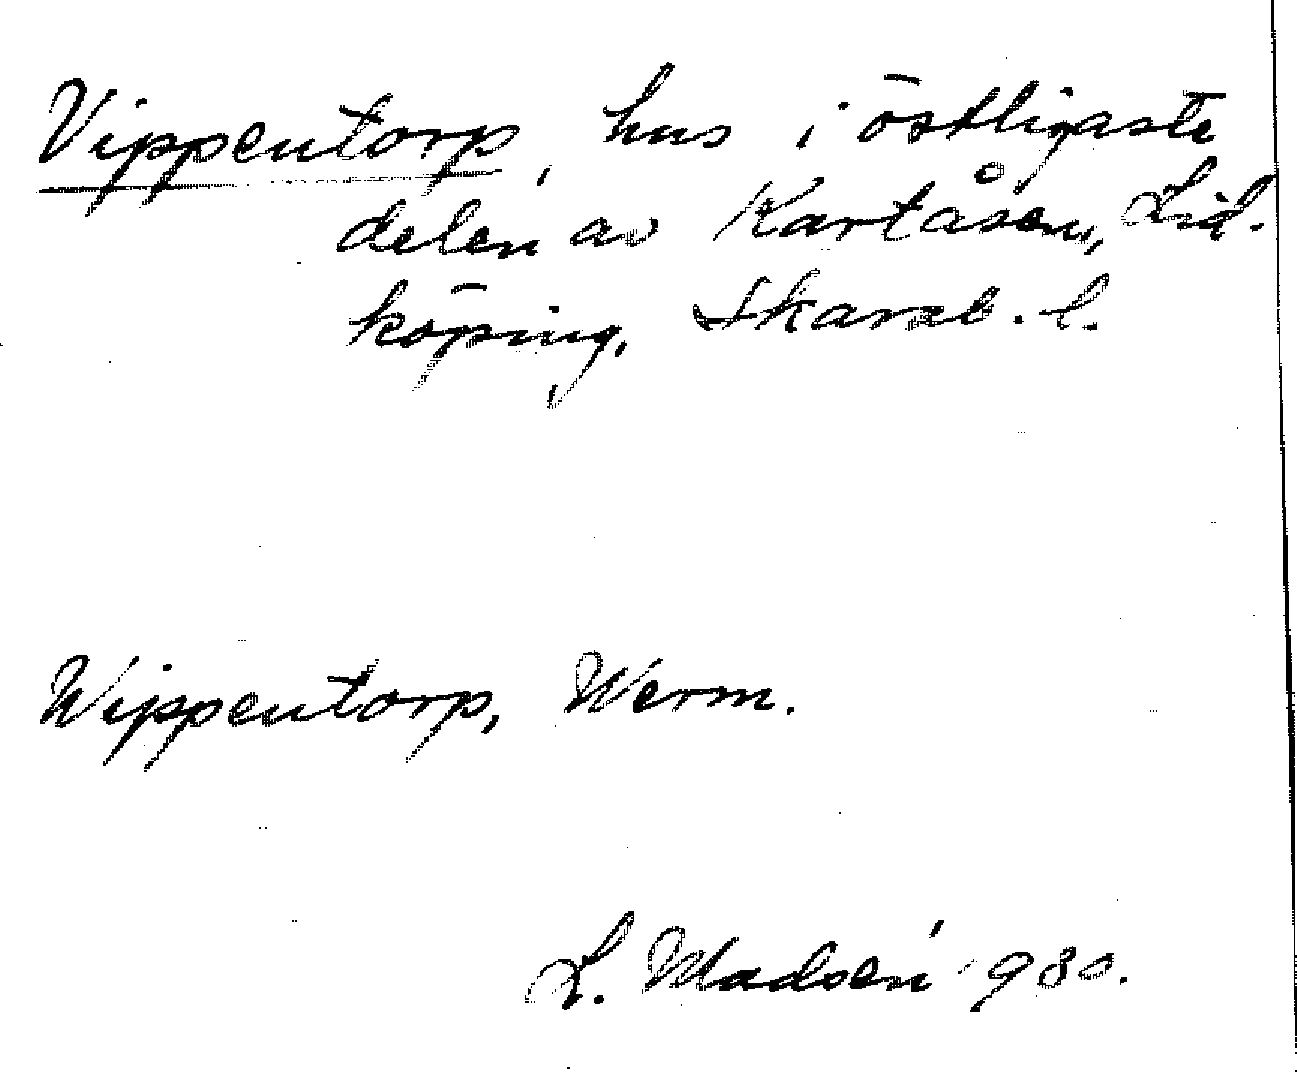 Vippentorp, hus i östligaste
delen av Kartåsen, Lid-
köping, Skarab. l.
Wippentorp, Werm.
L. Madsén 1980.